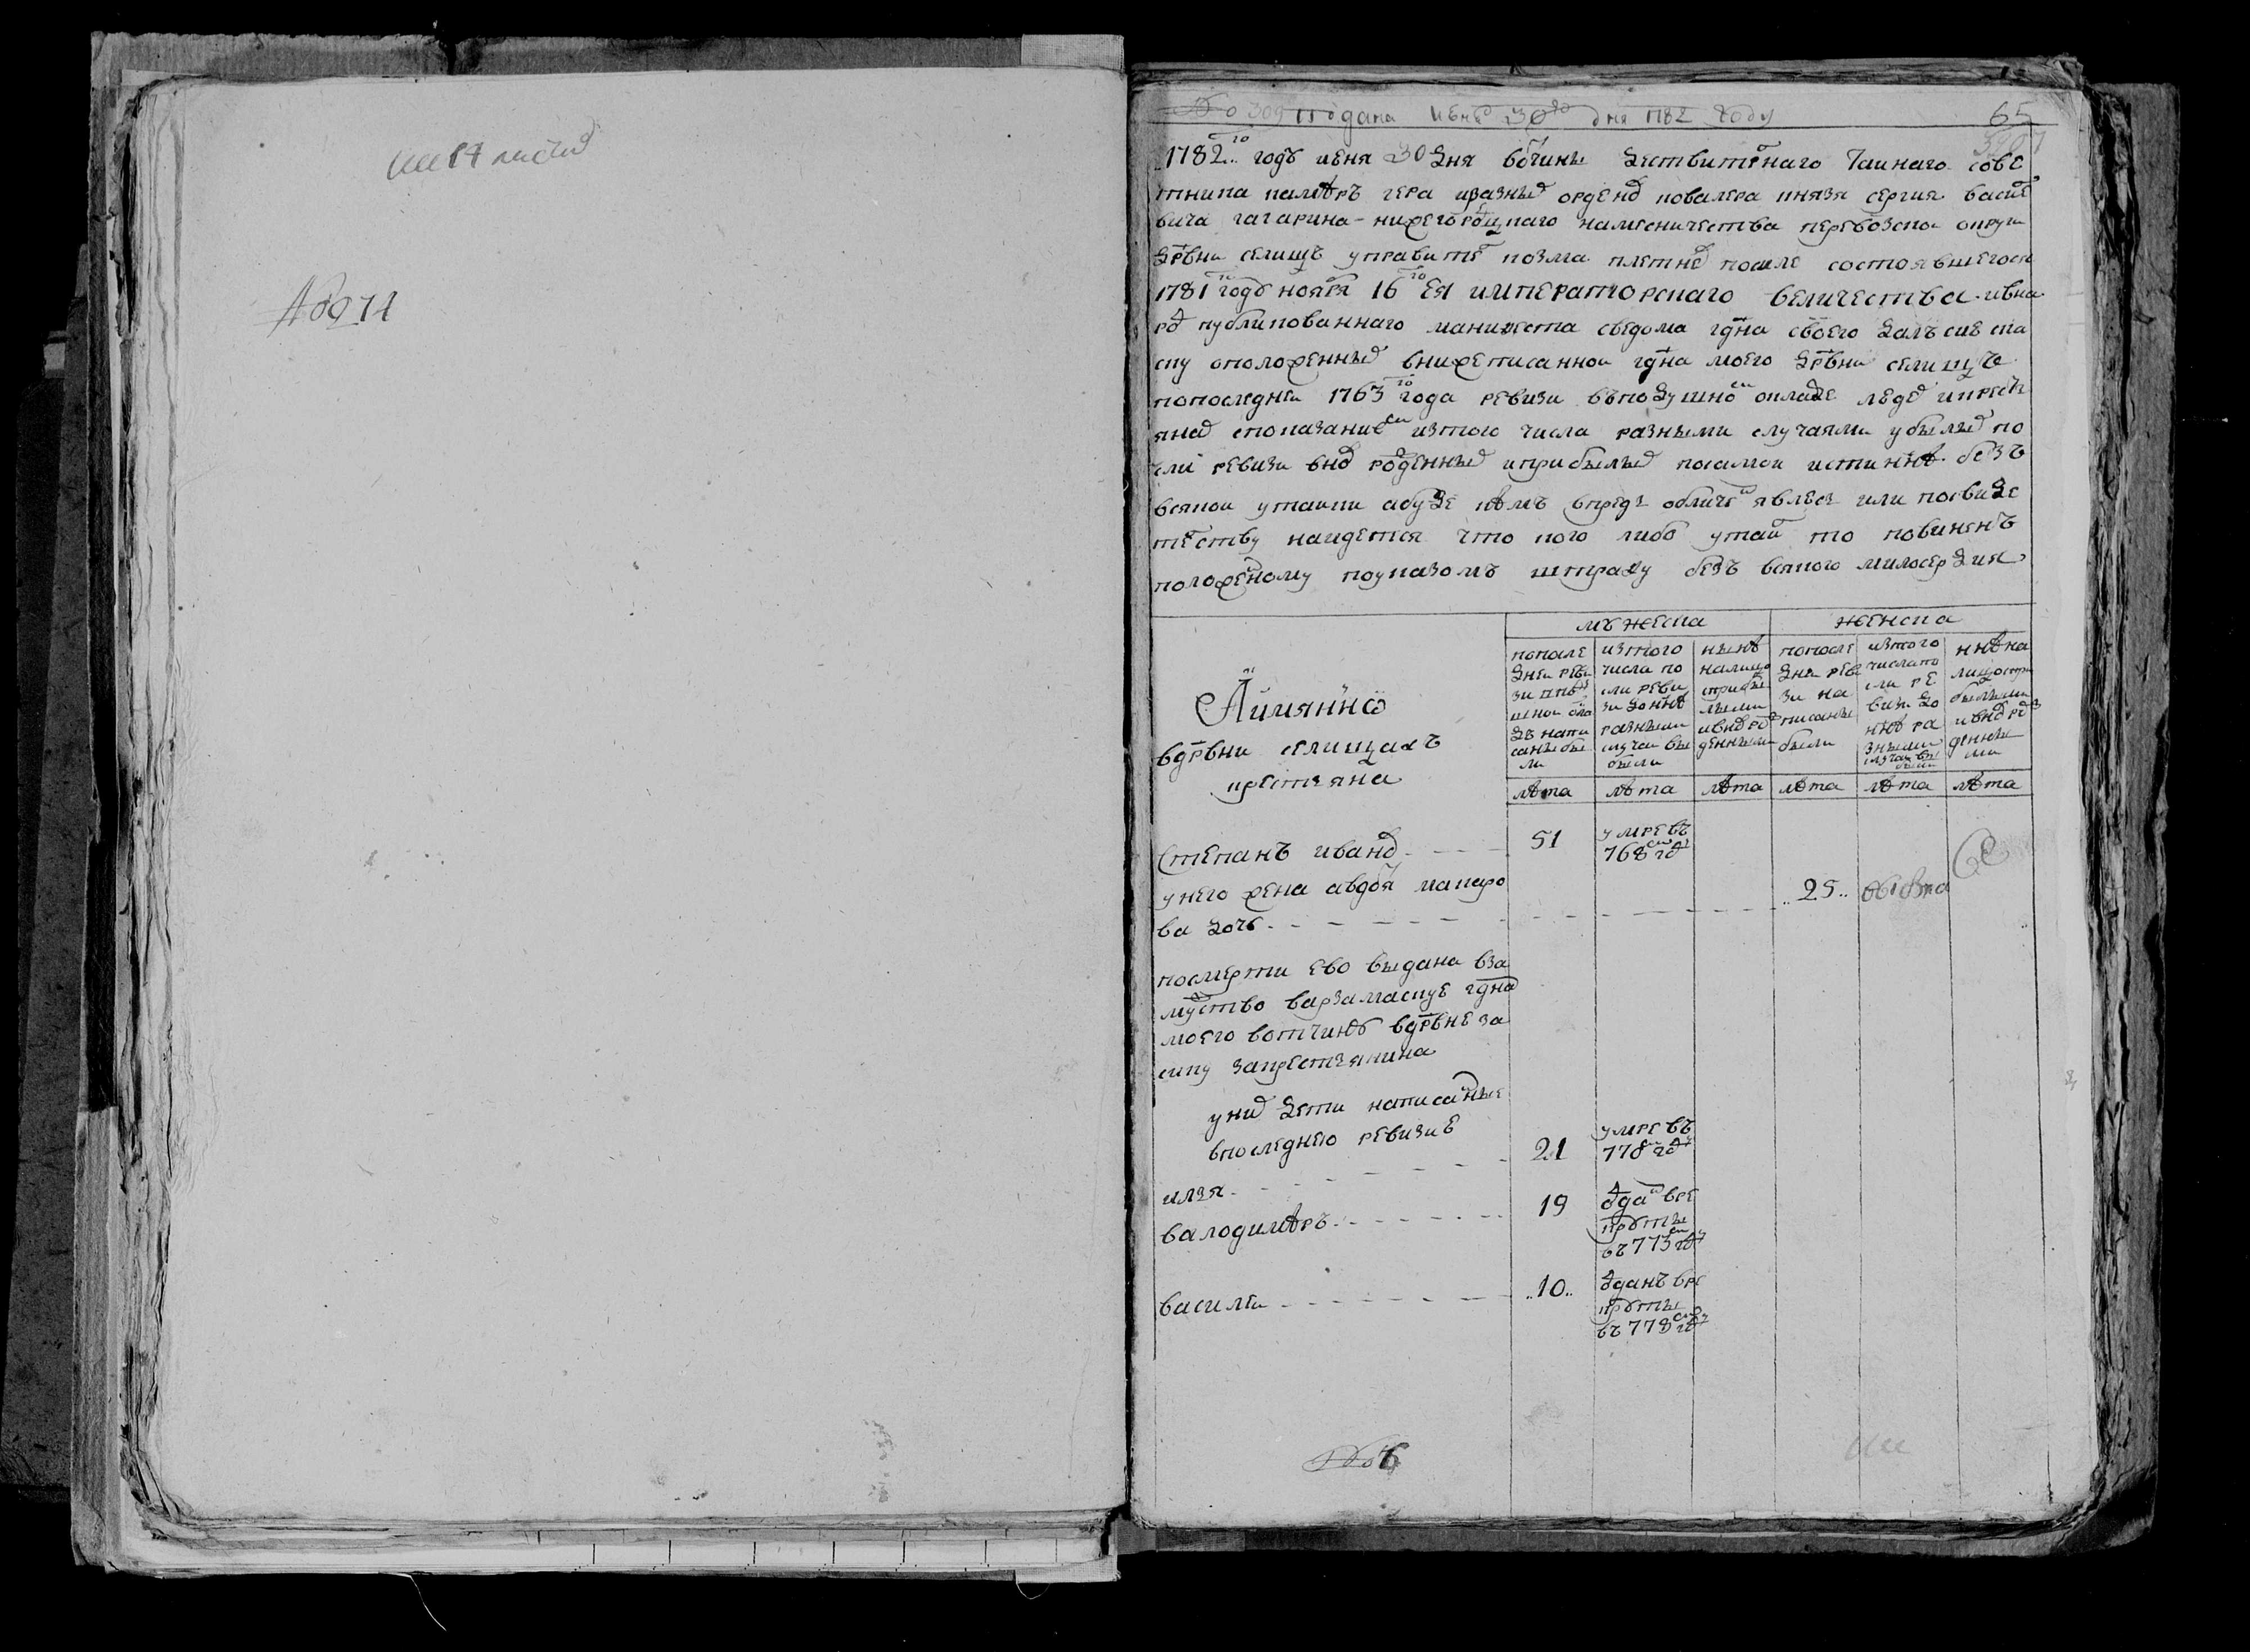 листов
№ 271
подана июня 30го дня 1782 году
65
1782го годъ июня 30 дня вотчины действителнаго таинаго сове
тника камѣръ гера иразных орденов ковалера князя сергия василе
вича гагарина нижегороцкаго намесничества перевозскои округи
дрвни селищъ управител козма плетнев после состоявшегося
1781го году ноября 16го Ея императорскаго величества ивна
род публикованнаго манифеста сведома гдна своего далъ сию ска
ску оположенных внижеписаннои гдна моего дрвни селищъ
попоследнеи 1763го года ревизи въподушной окладе людех икресть
янах спокзанием изтого числа разными случаями убылых по
сли ревизи внов рожденных иприбылых посамои истиннѣ безъ
всякои утаики абуде кѣмъ впредь обличен явлюсь или посвиде
телству наидется что кого либо утаил то повиненъ
положеному поуказомъ штрафу безъ всякого милосердия
Аимянно
вдрвни селищахъ
крестьяна
мужеска
женска
попосле
дней реви
зи вподу
шной окла
дъ напи
саны бы
ли
изтого
числа по
сли реви
зи до ннѣ
разными
случаи вы
были
нынѣ
налицо
сприбы
лыми
ивновро
жденными
попосле
дней реви
зи на
писаны
были
изтого
числа по
сли ре
визи до
ннѣ ра
зными
случаи вы
были
ннѣ на
лицо спри
былыми
ивнов ро
жденны
ми
лѣта лѣта лѣта лѣта лѣта лѣта
степанъ иванов 51 умре въ
768м году
унего жена авдотя макаро
ва дочь 25
посмерти ево выдана вза
мужство варзамаскую гдна
моего вотчинѣ вдрвне за
сипу закрестьянина
у них дети написанные
впоследнею ревизие
илья 21 умре въ
778м году
валодимѣръ 19 отдан вре
круты
въ 773м году
василеи 10 отданъ вре
круты
въ 778м году
№ 6